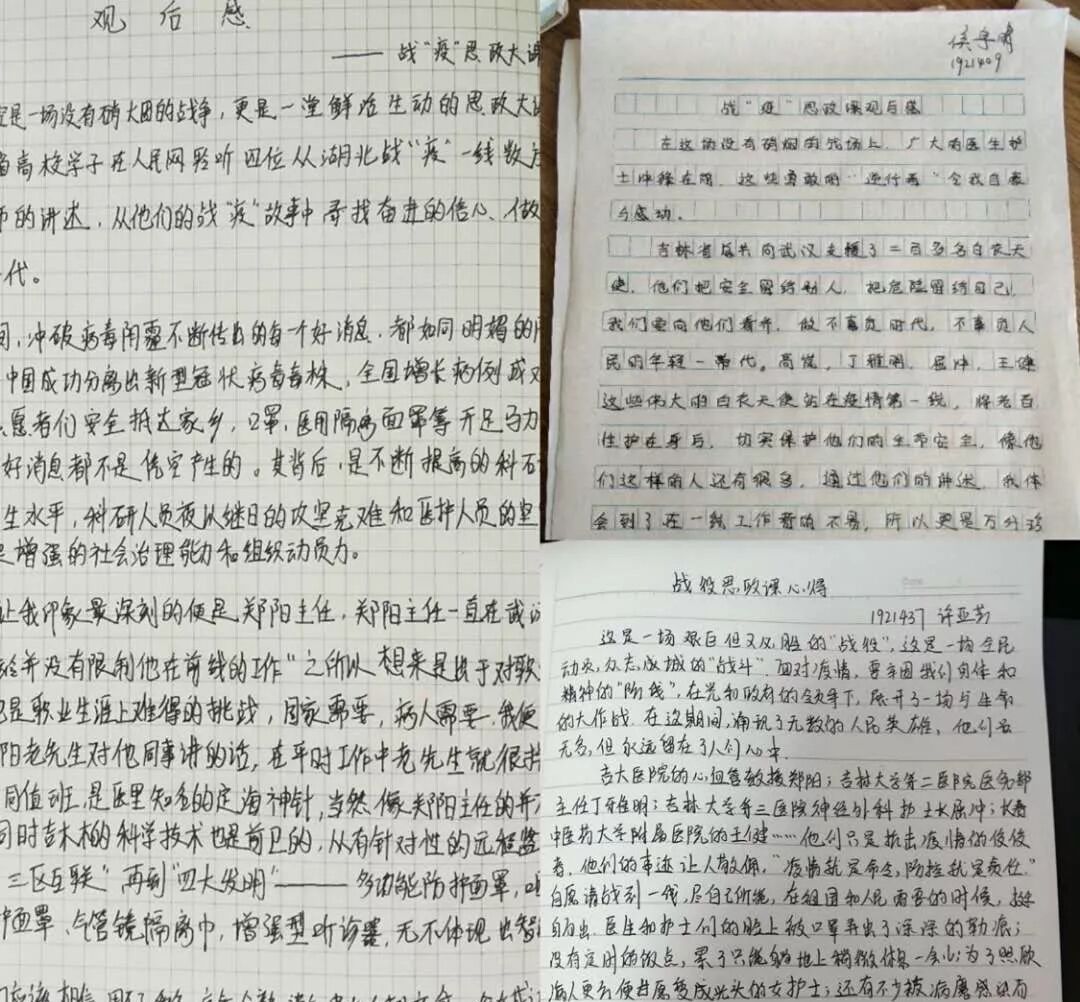 观后感
——战"疫"思政大课
是一场没有硝大困的战争，更是一堂鲜活生动的思政大
高校学子在人民网聆听四位从湖北战"疫"一线
师的讲述，从他们的战"疫"故事中寻找奋进的信心、做
代。
冲破病毒阴霾不断传出的每个好消息，都如同明媚的
中国成功分离出新型冠状病毒毒株，全国增长病例或
愿者们安全抵达家乡，口罩，医用隔离面罩等开足马力
好消息都不是凭空产生的。其背后，是不断提高的科研
生水平，科研人员夜以继日的攻坚克难和医护人员的坚
增强的社会治理能力和组织动员力。
让我印象最深刻的便是郑阳主任，郑阳主任一直在
并没有限制他在前线的工作"之所以想来是出于对
是职业生涯上难得的挑战，国家需要，病人需要，我便
阳老先生对他同事讲的话，在平时工作中老先生就很
同值班，是医里知名的定海神针，当然像郑阳主任的
同时吉林的科学技术也是前卫的，从有针对性的远程
三区互联"再到"四大发明"——多功能防护面罩，
面罩、气管镜隔离巾，增强型听诊器，无不体现出智
1921409
战"疫"思政课观后感
在这场没有硝烟的战场上，广大的医生护
士冲锋在前，这些勇敢的"逆行者"令我自豪
与感动。
吉林省总共向武汉支援了二百多名白衣天
使，他们把安全留给别人，把危险留给自己，
我们要向他们看齐，做不辜负时代，不辜负人
民的年轻一带代。高岚，丁雅明，屈冲，王健
这些伟大的白衣天使站在疫情第一线，将老百
姓护在身后，切实保护他们的生命安全，像他
们这样的人还有很多，通过他们的讲述，我体
会到了在一线工作着的不易，所以更是万分
战役思政课心得
1921437 许亚芳
这是一场艰巨但又必胜的"战役"，这是一场全民
动员，众志成城的"战斗"。面对疫情，要牢固我们身体和
精神的"防线"，在党和政府的领导下，展开了一场与生命
的大作战。在这期间，涌现了无数的人民英雄，他们虽
无名，但永远留在了人们心中。
吉大医院的心血管教授郑阳；吉林大学第二医院医务部
主任丁雅明；吉林大学第三医院神经外科护士长屈冲；长春
中医药大学附属医院的王健……他们只是抗击疫情的佼佼
者，他们的事迹让人敬佩，"疫情就是命令，防控就是责任"
自愿请战到一线，尽自己所能，在祖国和人民需要的时候，挺
身而出，医生和护士们的脸上被口罩弄出了深深的勒痕；
没有定时的饭点，累了只能躺地上稍微休息一会儿；为了照顾
病人更方便甘愿变成光头的女护士；还有不少被病属感